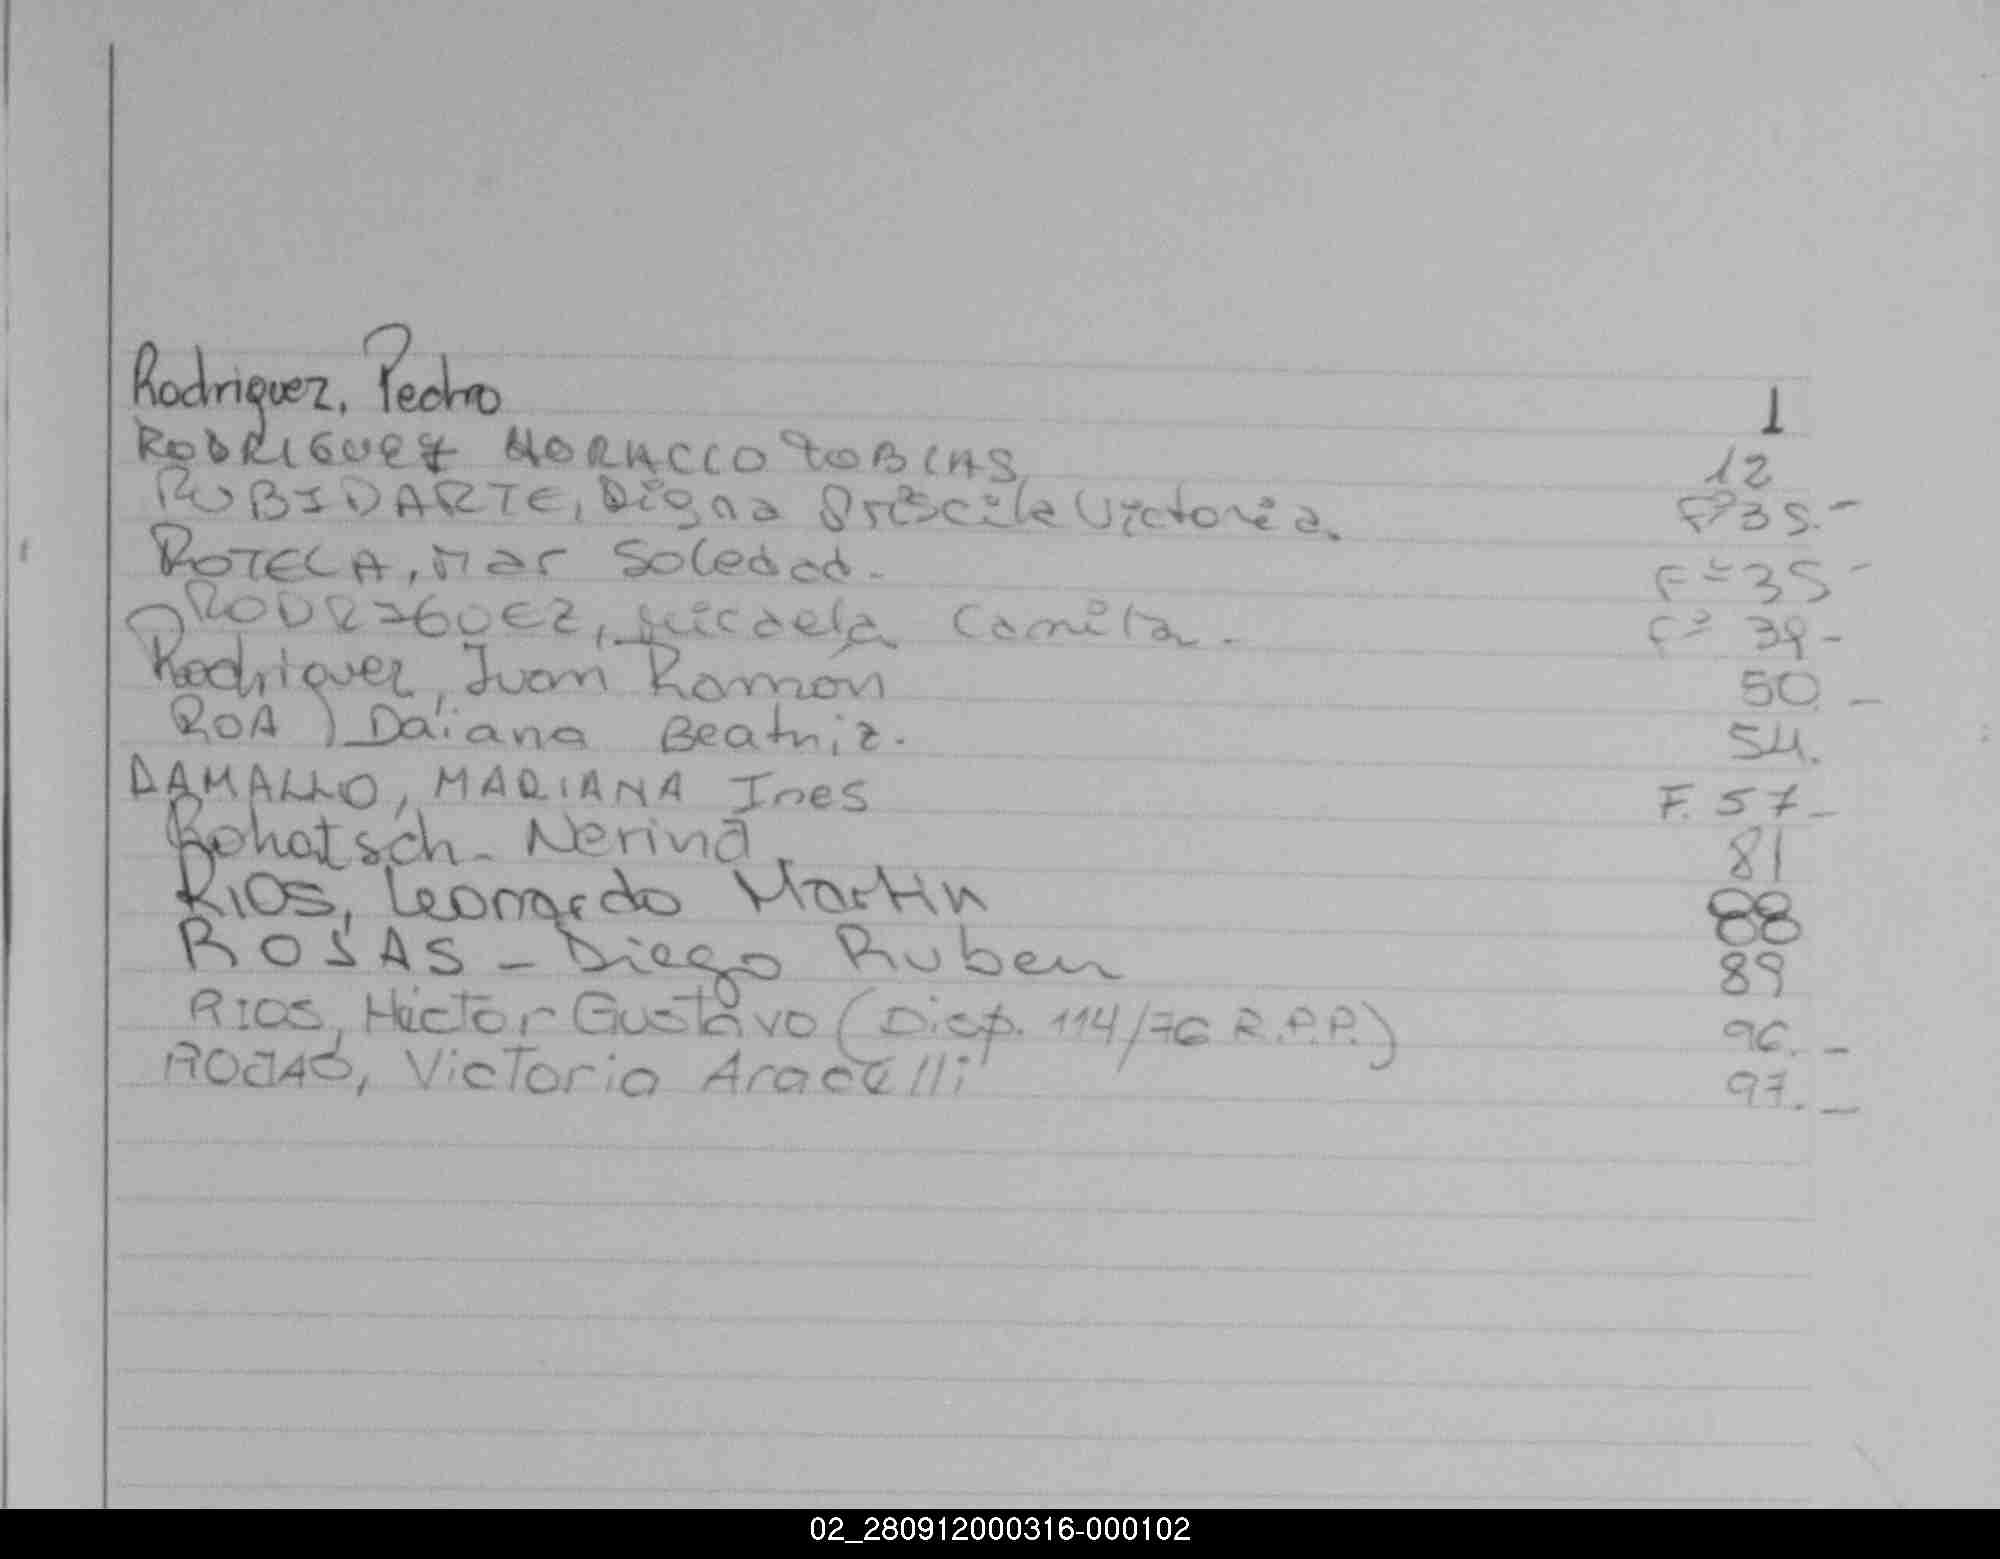 Rodriguez, Pedro 1
RODRIGUEZ HORACIO TOBIAS 12
RUBIDARTE, Digna Priscila Victoria. Fº 35.-
ROTELA, Mar Soledad.- Fº 35-
RODRIGUEZ, Micaela Camila.- Fº 39-
Rodriguez, Juan Ramón 50.-
ROA, Daiana Beatriz. 54.
DAMALLO, MARIANA Ines F. 57-
Rohatsch- Nerina 81
RIOS, Leonardo Martin 88
ROJAS - Diego Ruben 89
RIOS, Héctor Gustavo (Disp. 114/76 R.P.P.) 96.-
ROJAS, Victoria Aracelli 97.-
02_280912000316-000102